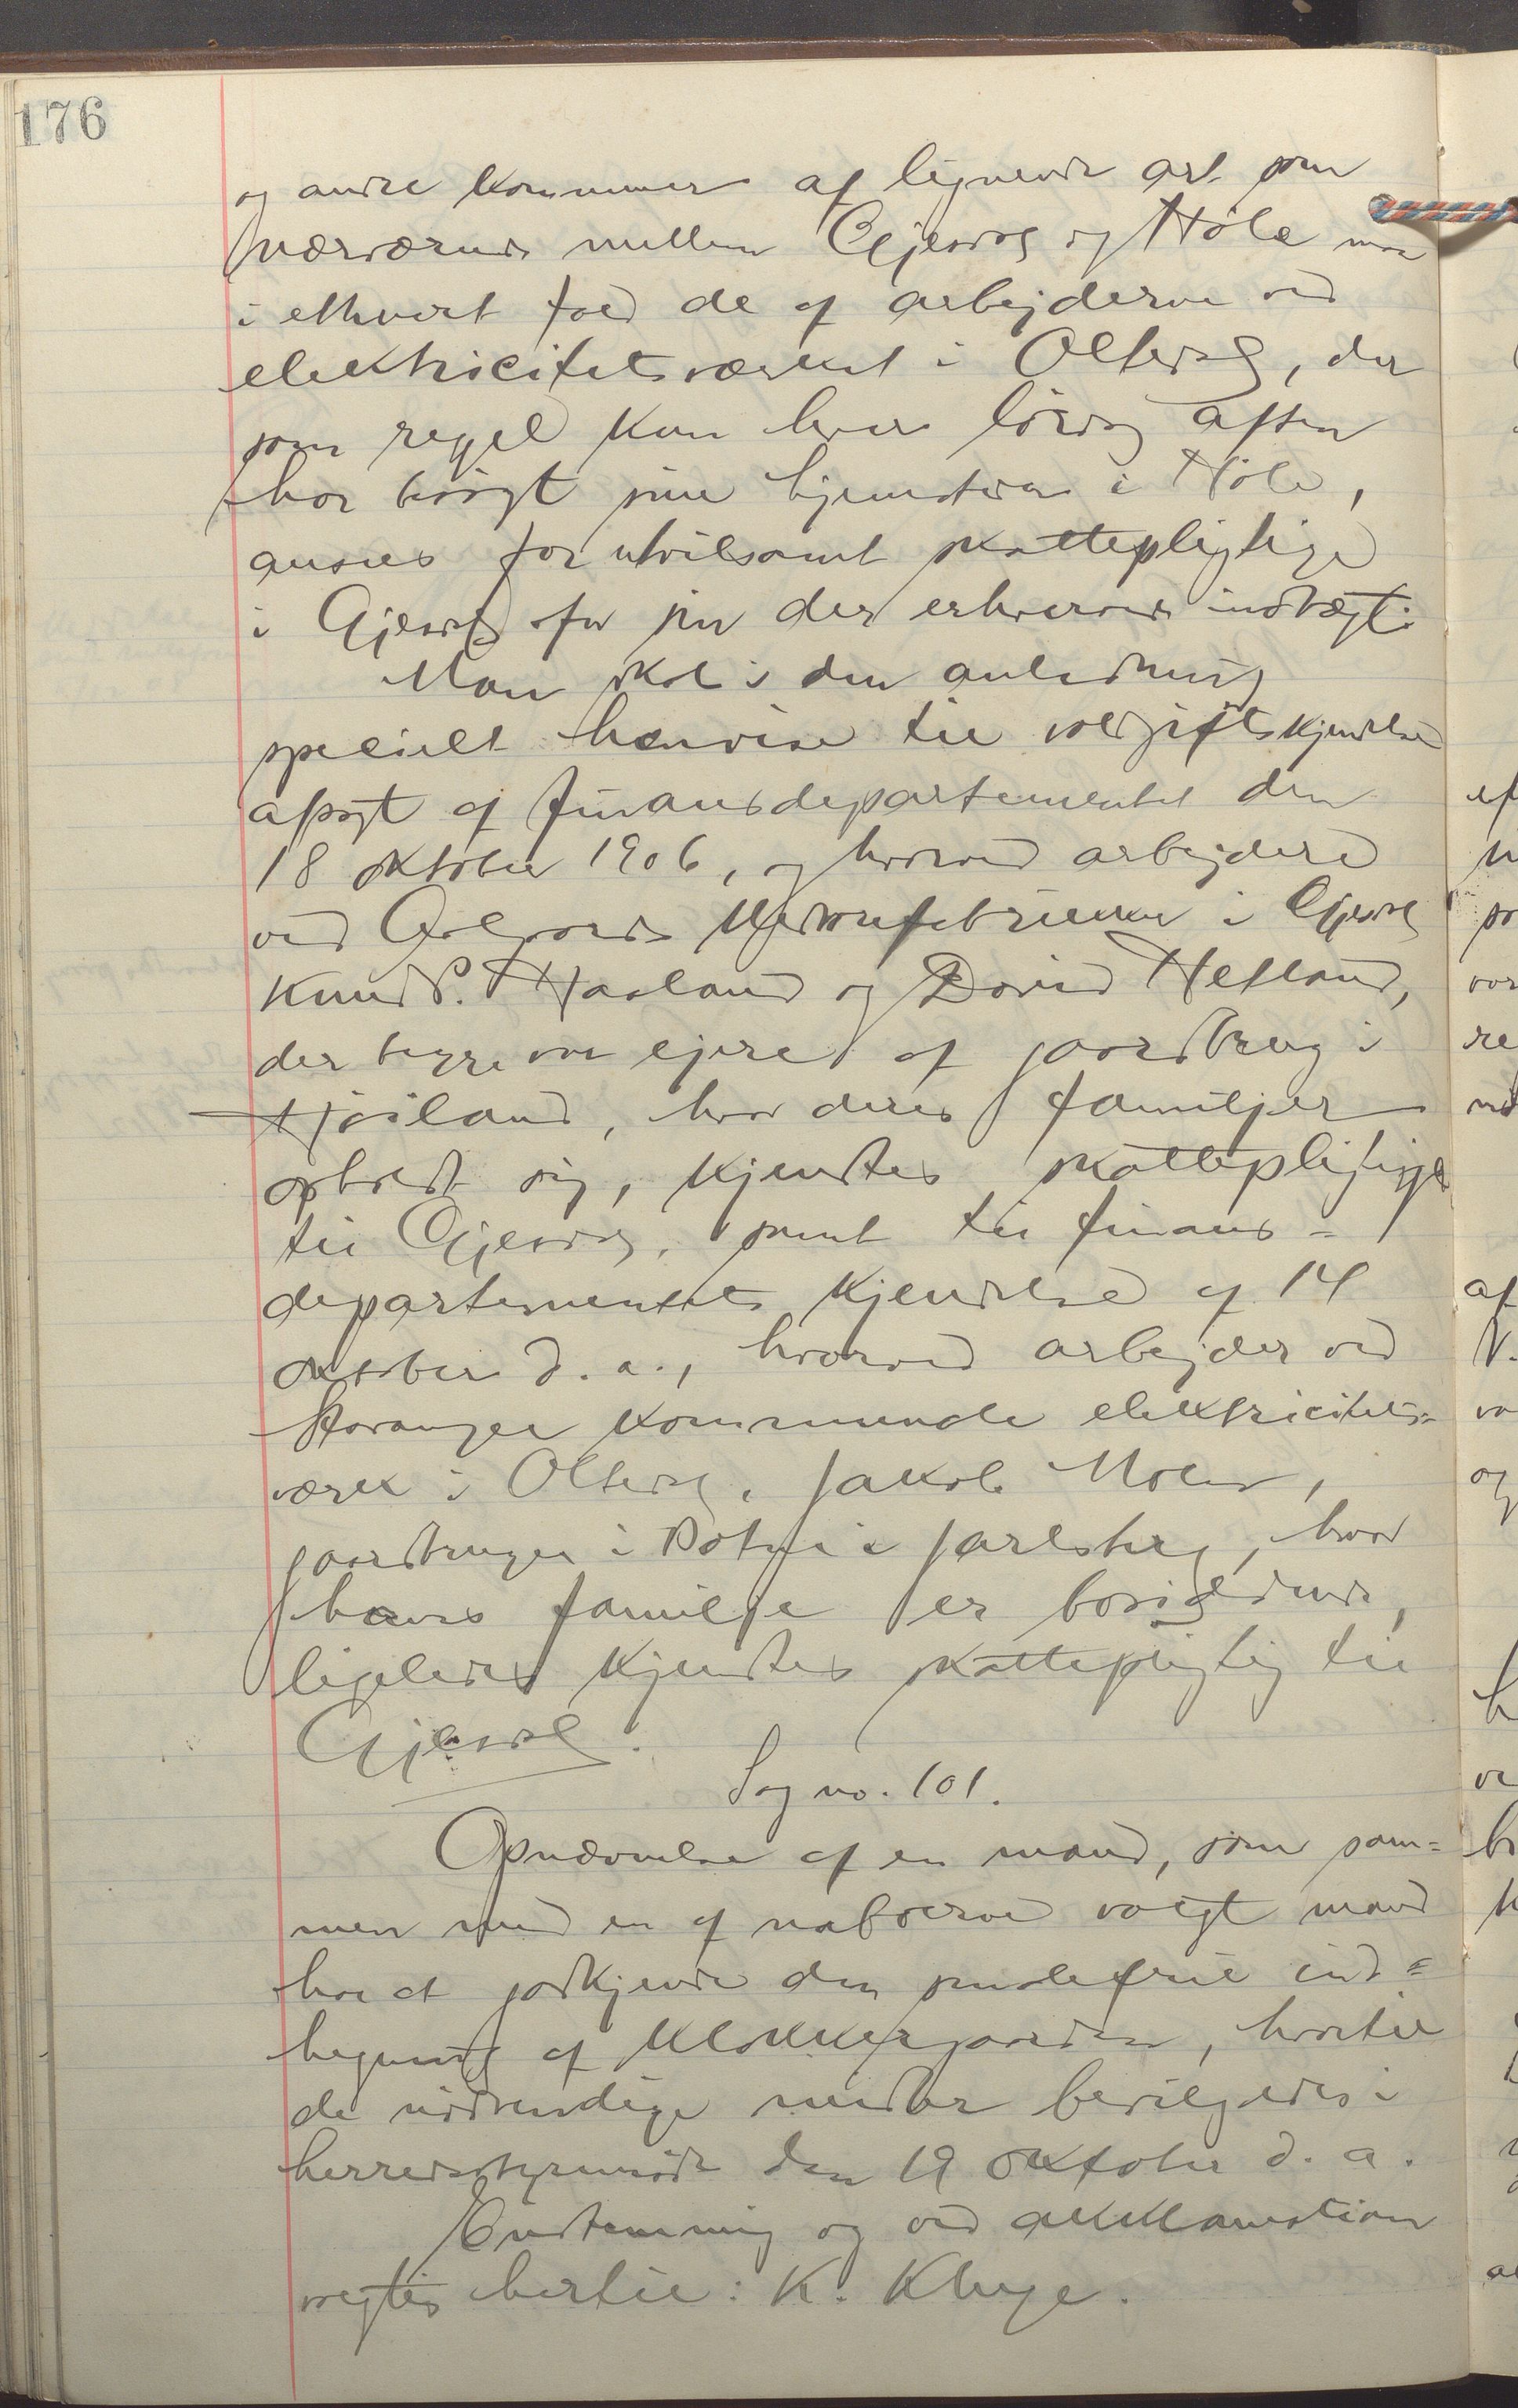 176
og andre kommuner af lignende art som
nærværende mellem Gjesdal og Høle maa
i ethvert fald de af arbejderne ved
elektricitetsværket i Oltedal, der
som regel kun hver lørdag aften
har besøgt sine hjemsteder i Høle,
ansees for utvilsomt skattepligtige
i Gjesdal for sin der erhvervede indtægt.
Man skal i den anledning
specielt henvise til voldgiftskjendelse
afsagt af finansdepartementet den
18 oktober 1906, og hvorved arbejdere
ved Aalgaards Uldvarefabrikker i Gjesdal
Knud P. Haaland og David Hetland,
der begge var ejere af gaardbrug i
Høiland, hvor deres familjer
opholdt sig, kjendtes skattepligtige
til Gjesdal, samt til finans-
departementets kjendelse af 14
oktober d. a., hvorved arbejder ved
Stavanger kommunale elektricitets-
værk i Oltedal, Jakob Moen,
gaardbruger i Botne i Jarlsberg, hvor
hans familje er bosiddende,
ligeledes kjendtes skattepligtig til
Gjesdal.
Sag no. 101.
Opnævnelse af en mand, som sam-
men med en af naboerne valgt mand
har at godkjende den smalefrie ind-
hegning af Klokkergaarden, hvortil
de nødvendige midler bevilgedes i
herredsstyremøde den 19 oktober d. a.
Enstemmig og ved akklamation
valgtes hertil: K. Kluge.